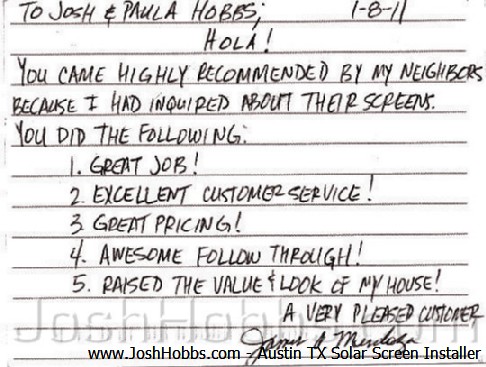 TO JOSH & PAULA HOBBS; 1-8-11
HOLA!
YOU CAME HIGHLY RECOMMENDED BY MY NEIGHBORS
BECAUSE I HAD INQUIRED ABOUT THEIR SCREENS.
YOU DID THE FOLLOWING:
1. GREAT JOB!
2. EXCELLENT CUSTOMER SERVICE!
3. GREAT PRICING!
4. AWESOME FOLLOW THROUGH!
5. RAISED THE VALUE & LOOK OF MY HOUSE!
A VERY PLEASED CUSTOMER
JoshHobbs.com
Mendoza
www.JoshHobbs.com - Austin TX Solar Screen Installer